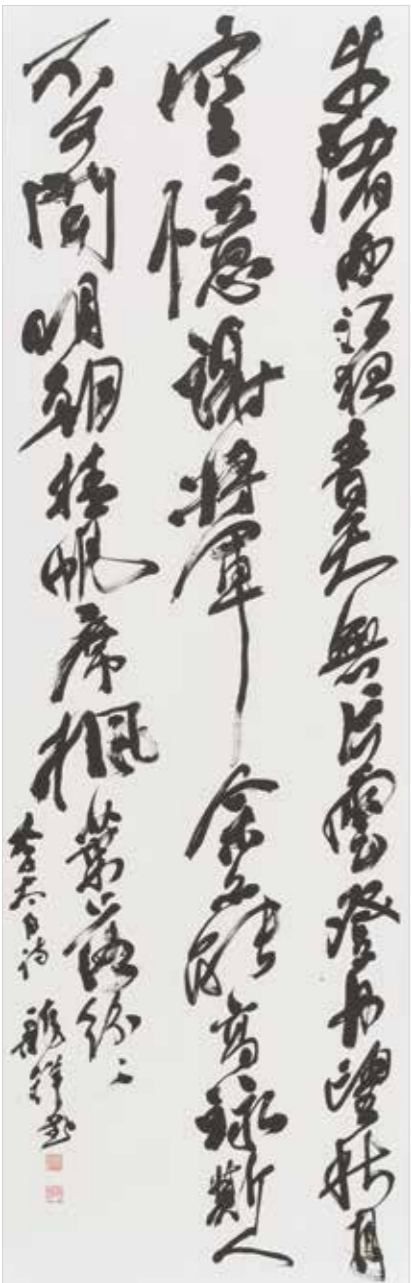 牛渚西江夜青天無片雲登舟望秋月
空憶謝將軍余亦能高詠斯人
不可聞明朝挂帆席楓葉落紛々
李太白詩